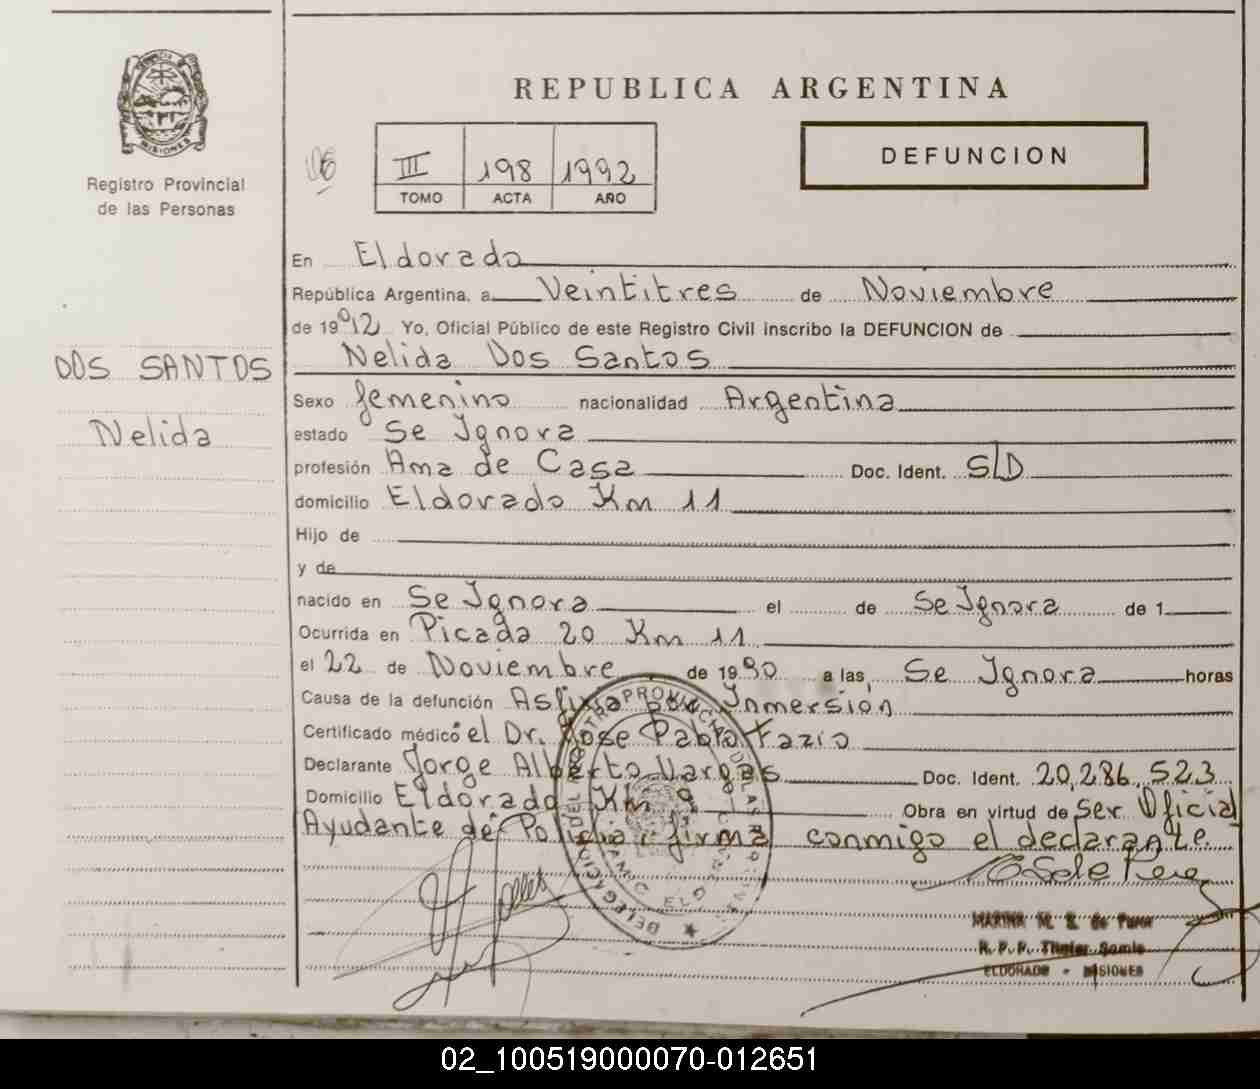 REPUBLICA ARGENTINA
MISIONES
Registro Provincial
de las Personas
III 198 1992
TOMO ACTA AÑO
DEFUNCION
En Eldorado
República Argentina, a Veintitres de Noviembre
de 1992 Yo, Oficial Público de este Registro Civil inscribo la DEFUNCION de
Nelida Dos Santos
DOS SANTOS
Nelida
Sexo femenino nacionalidad Argentina
estado Se Ignora
profesión Ama de Casa Doc. Ident. S/D
domicilio Eldorado Km 11
Hijo de
y de
nacido en Se Ignora el de Se Ignora de 1
Ocurrida en Picada 20 Km 11
el 22 de Noviembre de 1990 a las, Se Ignora horas
Causa de la defunción Asfixia por Inmersión
Certificado médico el Dr. Jose Pablo Fazio
Declarante Jorge Alberto Vargas Doc. Ident. 20,286,523
Domicilio Eldorado Km 9 Obra en virtud de ser Oficial
Ayudante de Policia; firma conmigo el declarante.
MARINA M. de
R. P. P.
ELDORADO - MISIONES
02_100519000070-012651